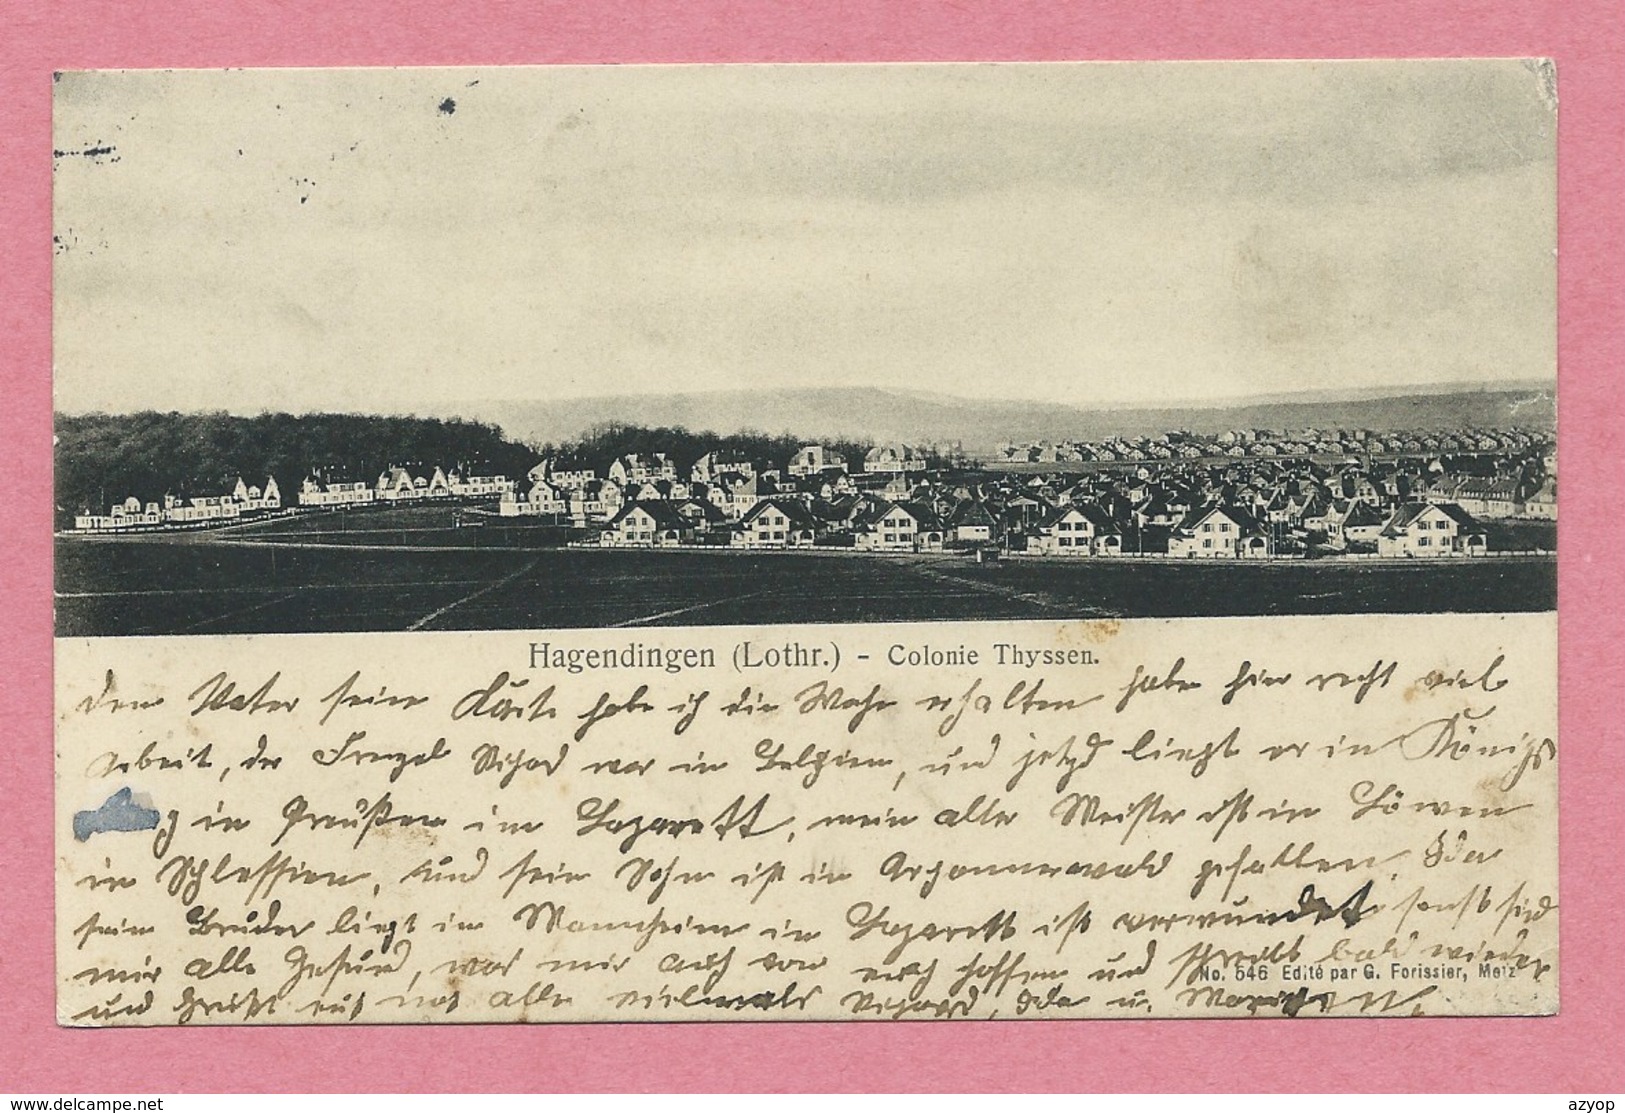 Hagendingen (Lothr.) - Colonie Thyssen.
dem Vater seine Karte habe ich die Woche erhalten habe hier recht viel
Arbeit, der Frenzel Rihard war in Belgien, und jetzd liegt er in Königs
g in Preußen im Lazarett, mein alter Meister ist in Löwen
in Schlessien, und sein Sohn ist in Argonnerwald gefallen,
sein Bruder liegt in Mannheim in Lazarett ist verwundet sonst sind
wir alle Gesund, was wir auch von euch hoffen und schreibt bald wieder
und Grüßt euch alle vielmals Rihard, u.
No. 546 Edité par G. Forissier, Metz
www.delcampe.net
azyop